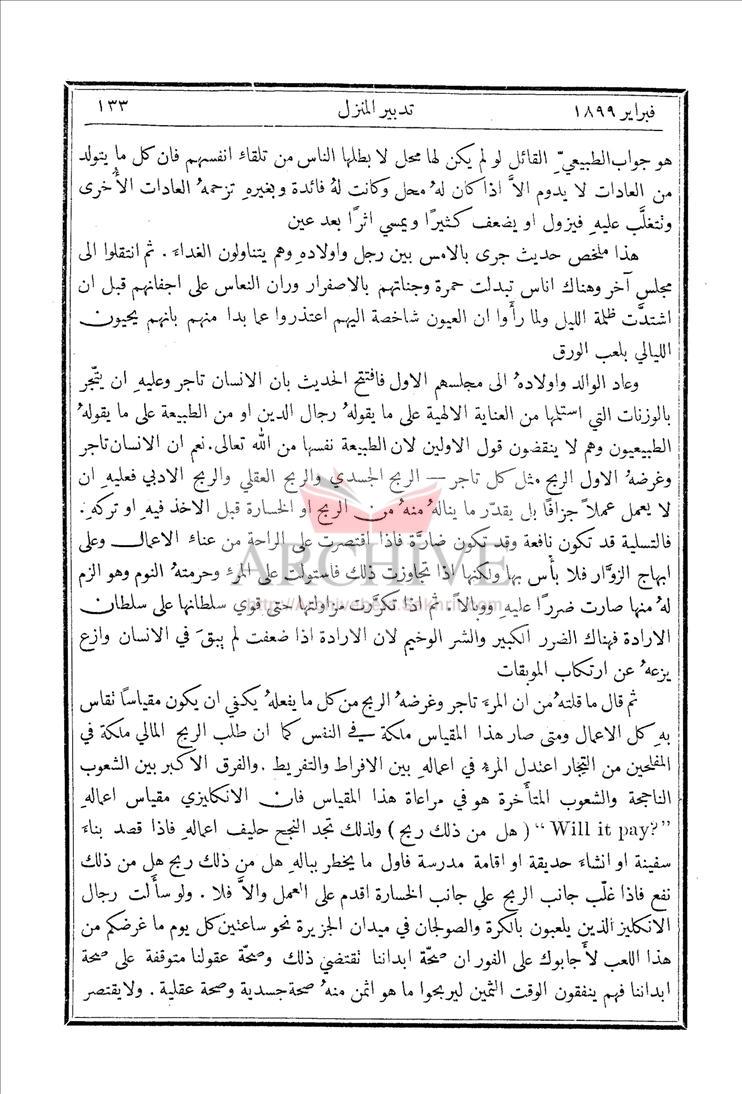 فبراير ١٨٩٩ تدبير المنزل ١٣٣
هو جواب الطبيعيّ القائل لو لم يكن لها محل لا بطلها الناس من تلقاء انفسهم فان كل ما يتولد
من العادات لا يدوم الاَّ اذا كان لهُ محل وكانت لهُ فائدة وبغيرهِ تزحمهُ العادات الأُخرى
وتتغلَّب عليهِ فيزول او يضعف كثيرًا ويمسي اثرًا بعد عين
هذا ملخص حديث جرى بالامس بين رجل واولادهِ وهم يتناولون الغداء . ثم انتقلوا الى
مجلس آخر وهناك اناس تبدلت حمرة وجناتهم بالاصفرار وران النعاس على اجفانهم قبل ان
اشتدَّت ظلمة الليل ولما رأَوا ان العيون شاخصة اليهم اعتذروا عما بدا منهم بانهم يحيون
الليالي بلعب الورق
وعاد الوالد واولادهُ الى مجلسهم الاول فافتتح الحديث بان الانسان تاجر وعليهِ ان يتّجر
بالوزنات التي استلمها من العناية الالهية على ما يقولهُ رجال الدين او من الطبيعة على ما يقولهُ
الطبيعيون وهم لا ينقضون قول الاولين لان الطبيعة نفسها من الله تعالى. نعم ان الانسان تاجر
وغرضهُ الاول الربح مثل كل تاجر — الربح الجسدي والربح العقلي والربح الادبي فعليهِ ان
لا يعمل عملاً جزافًا بل يقدّر ما ينالهُ منهُ من الربح او الخسارة قبل الاخذ فيهِ او تركهِ.
فالتسلية قد تكون نافعة وقد تكون ضارَّة فاذا اقتصرت على الراحة من عناء الاعمال وعلى
ابهاج الزوَّار فلا بأس بها ولكنها اذا تجاوزت ذلك فاستولت على المرءِ وحرمتهُ النوم وهو الزم
لهُ منها صارت ضررًا عليهِ ووبالاً. ثم اذا تكرَّرت مزاولتها حتى قوي سلطانها على سلطان
الارادة فهناك الضرر الكبير والشر الوخيم لان الارادة اذا ضعفت لم يبقَ في الانسان وازع
يزعهُ عن ارتكاب الموبقات
ثم قال ما قلتهُ من ان المرءَ تاجر وغرضهُ الربح من كل ما يفعلهُ يكفي ان يكون مقياسًا تقاس
بهِ كل الاعمال ومتى صار هذا المقياس ملكة في النفس كما ان طلب الربح المالي ملكة في
المفلحين من التجار اعتدل المرءُ في اعمالهِ بين الافراط والتفريط . والفرق الاكبر بين الشعوب
الناجحة والشعوب المتأَخرة هو في مراعاة هذا المقياس فان الانكليزي مقياس اعمالهِ
"Will it pay?" ( هل من ذلك ربح ) ولذلك تجد النجح حليف اعمالهِ فاذا قصد بناء
سفينة او انشاء حديقة او اقامة مدرسة فاول ما يخطر ببالهِ هل من ذلك ربح هل من ذلك
نفع فاذا غلّب جانب الربح على جانب الخسارة اقدم على العمل والاَّ فلا . ولو سأَلت رجال
الانكليز الذين يلعبون بالكرة والصولجان في ميدان الجزيرة نحو ساعتين كل يوم ما غرضكم من
هذا اللعب لأَجابوك على الفور ان صحّة ابداننا تقتضي ذلك وصحّة عقولنا متوقفة على صحة
ابداننا فهم ينفقون الوقت الثمين ليربحوا ما هو اثمن منهُ صحة جسدية وصحة عقلية . ولا يقتصر
ARCHIVE